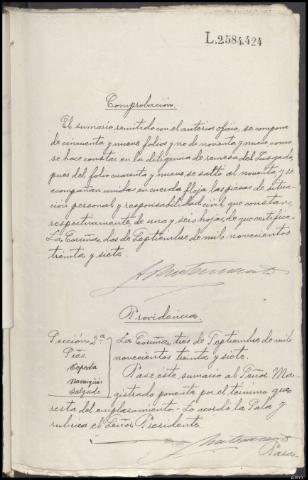 L.2584.424
Comprobación.
El sumario remitido con el anterior oficio, se compone
de cincuenta y nueve folios y no de noventa y nueve como
se hace constar en la diligencia de remesa del Juzgado,
pues del folio cuarenta y nueve se saltó al noventa y se
acompañan unidas en cuerda floja las piezas de situa-
ción personal y responsabilidad civil que constan
respectivamente de una y seis hojas de que certifico.
La Coruña, dos de Septiembre de mil novecientos
treinta y siete
Providencia
Sección 2ª
Pres.
Cepeda
Salgado
La Coruña, tres de Septiembre de mil
novecientos treinta y siete.
Pase este sumario al Señor Ma-
gistrado ponente por el término que
resta del emplazamiento - Lo acordó la Sala y
rubrica el Señor Presidente
Pasa